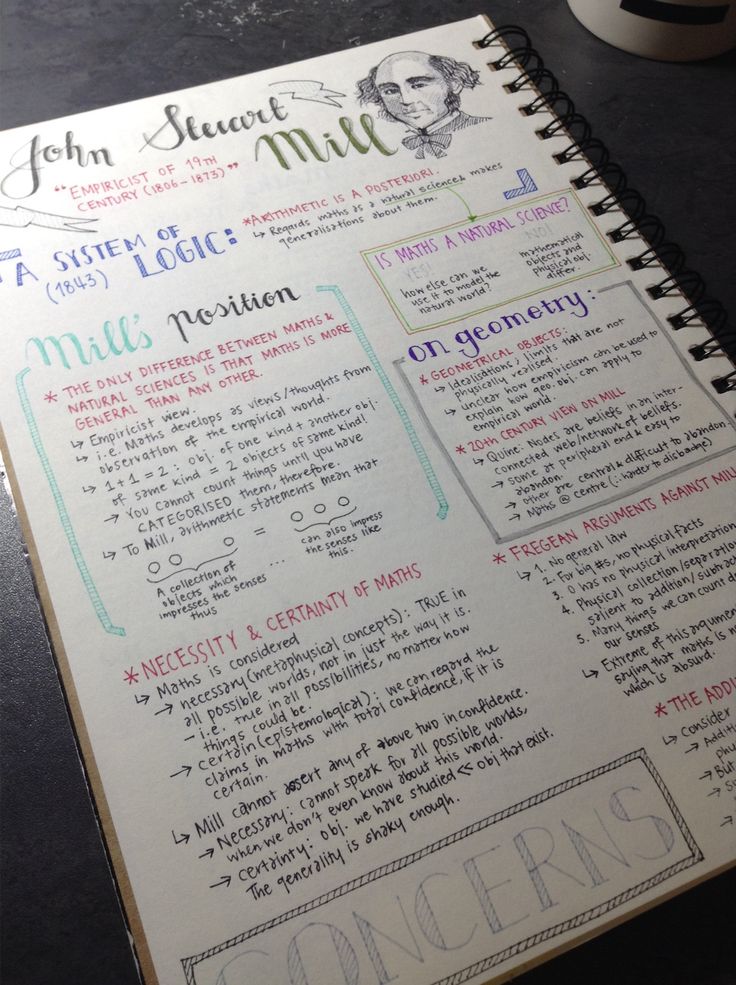 John Stewart
Mill
"EMPIRICIST OF 19TH
CENTURY (1806-1873)"
"A SYSTEM OF
(1843) LOGIC:
*ARITHMETIC IS A POSTERIORI.
↳ Regards maths as a natural science & makes
generalisations about them.
IS MATHS A NATURAL SCIENCE?
YES!
how else can we
use it to model the
natural world?
NO!
mathematical
objects and
physical obj.
differ.
Mill's position
* THE ONLY DIFFERENCE BETWEEN MATHS &
NATURAL SCIENCES IS THAT MATHS IS MORE
GENERAL THAN ANY OTHER.
↳ Empiricist view.
↳ i.e. Maths develops as views/thoughts from
observation of the empirical world.
↳ 1+1=2: obj. of one kind + another obj.
of same kind = 2 objects of same kind!
→ You cannot count things until you have
CATEGORISED them, therefore.
↳ To Mill, arithmetic statements mean that
=
A collection of
objects which
impresses the senses
thus
...
can also impress
the senses like
this.
on geometry:
* GEOMETRICAL OBJECTS:
↳ Idealisations / limits that are not
physically realised.
↳ unclear how empiricism can be used to
explain how geo. obj. can apply to
empirical world.
* 20th CENTURY VIEW ON MILL
↳ Quine: Nodes are beliefs in an inter-
connected web/network of beliefs.
→ some at peripheral end & easy to
abandon.
→ other are central & difficult to abandon
→ Maths @ centre (∴ harder to dislodge)
* NECESSITY & CERTAINTY OF MATHS
↳ Maths is considered
→ necessary (metaphysical concepts): TRUE in
all possible worlds, not in just the way it is.
– i.e. true in all possibilities, no matter how
things could be.
→ certain (epistemological): we can regard the
claims in maths with total confidence, if it is
certain.
↳ Mill cannot assert any of above two in confidence.
→ Necessary: cannot speak for all possible worlds,
when we don't even know about this world.
→ certainty: obj. we have studied << obj that exist.
The generality is shaky enough.
* FREGEAN ARGUMENTS AGAINST MILL
↳ 1. No general law
2. For big #s, no physical facts
3. 0 has no physical interpretation
4. Physical collection/separation
salient to addition/subtract
5. Many things we can count
our senses
↳ Extreme of this argument
saying that maths is no
which is absurd.
* THE ADDI
↳ Consider
→ Additi
phy
→ But
CONCERNS